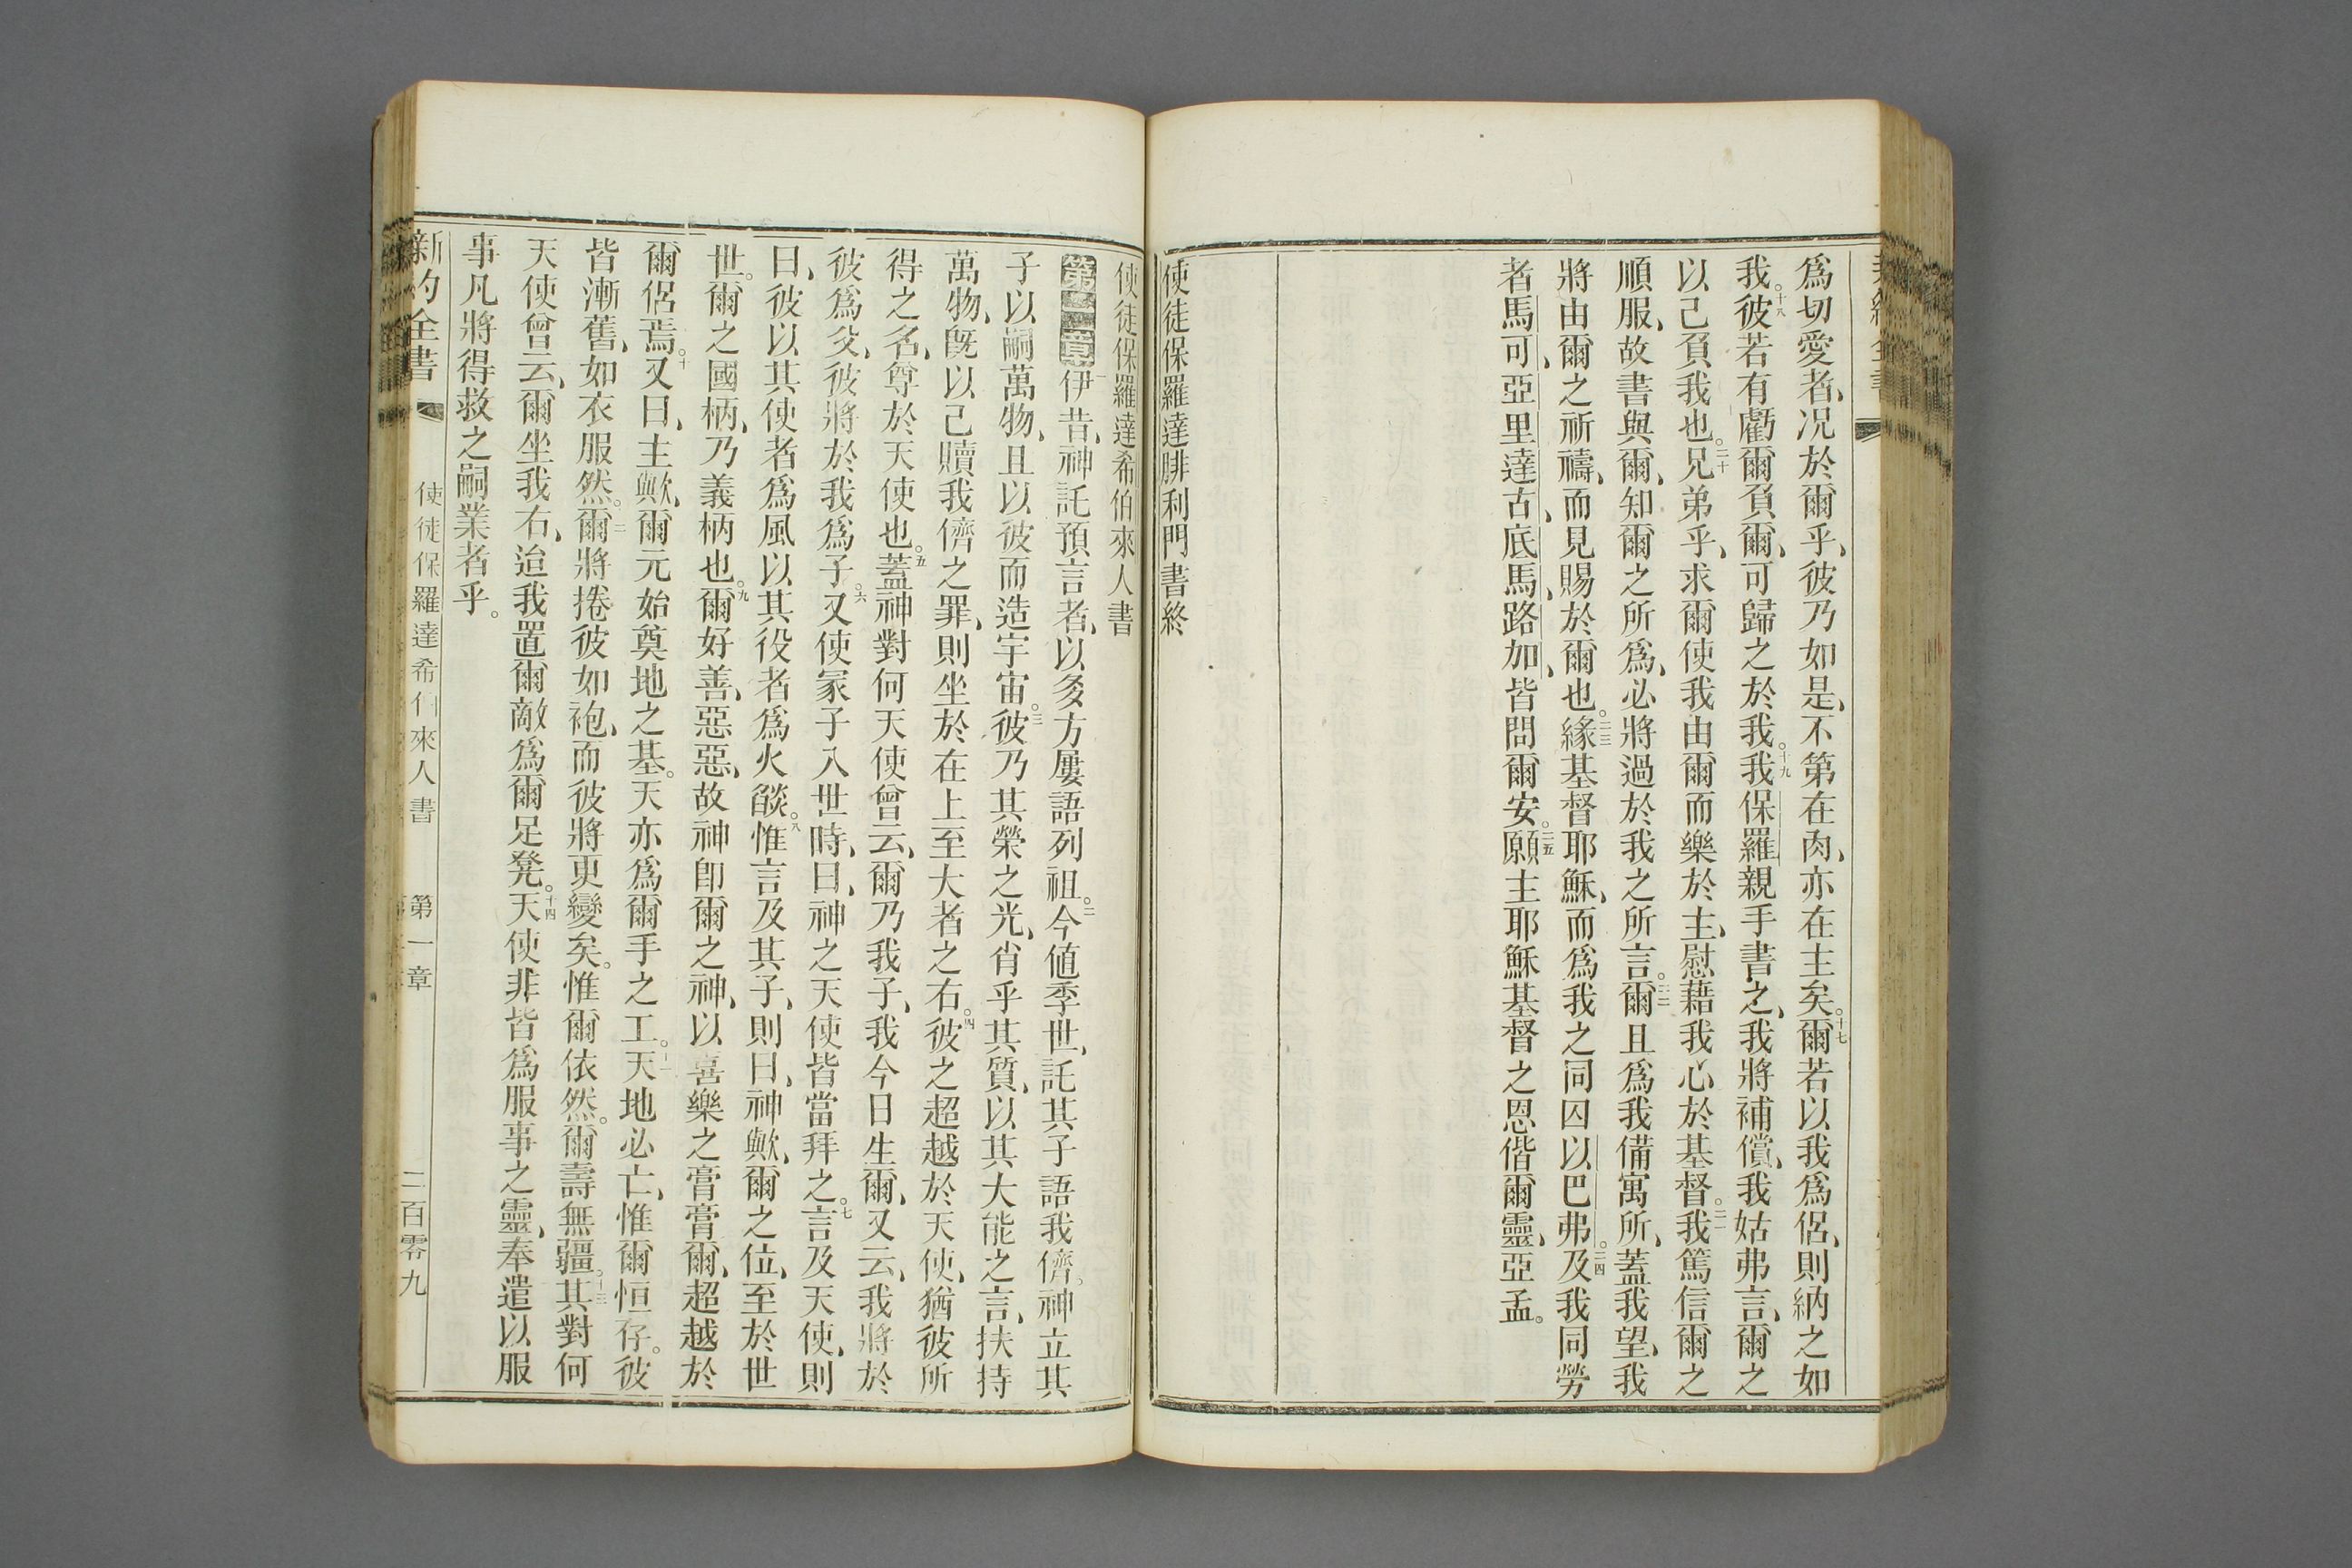 爲切愛者、况於爾乎、彼乃如是、不第在肉、亦在主矣。十七爾若以我爲侶、則納之如
我。十八彼若有虧爾負爾、可歸之於我。十九我保羅親手書之、我將補償、我姑弗言、爾之
以己負我也。二十兄弟乎、求爾使我由爾而樂於主、慰藉我心於基督。二一我篤信爾之
順服、故書與爾、知爾之所爲、必將過於我之所言。二二爾且爲我備寓所、蓋我望、我
將由爾之祈禱、而見賜於爾也。二三緣基督耶穌、而爲我之同囚以巴弗。二四及我同勞
者馬可、亞里達古、底馬、路加、皆問爾安。二五願主耶穌基督之恩偕爾靈、亞孟。
使徒保羅達腓利門書終
使徒保羅達希伯來人書
第一章一伊昔、神託預言者、以多方屢語列祖。二今値季世、託其子語我儕。神立其
子以嗣萬物、且以彼而造宇宙。三彼乃其榮之光、肖乎其質、以其大能之言、扶持
萬物、旣以己贖我儕之罪、則坐於在上至大者之右。四彼之超越於天使、猶彼所
得之名、尊於天使也。五蓋神對何天使曾云、爾乃我子、我今日生爾、又云、我將於
彼爲父、彼將於我爲子。六又使冢子入世時、曰、神之天使皆當拜之。七言及天使、則
曰、彼以其使者爲風以其役者爲火燄。八惟言及其子、則曰、神歟、爾之位、至於世
世。爾之國柄、乃義柄也。九爾好善、惡惡、故神卽爾之神、以喜樂之膏膏爾、超越於
爾侶焉。十又曰、主歟、爾元始奠地之基。天亦爲爾手之工。十一天地必亡、惟爾恒存。彼
皆漸舊、如衣服然。十二爾將捲彼如袍、而彼將更變矣。惟爾依然。爾壽無疆。十三其對何
天使曾云、爾坐我右、迨我置爾敵爲爾足凳。十四天使非皆爲服事之靈、奉遣以服
事凡將得救之嗣業者乎。
新約全書
使徒保羅達希伯來人書
第一章
二百零九